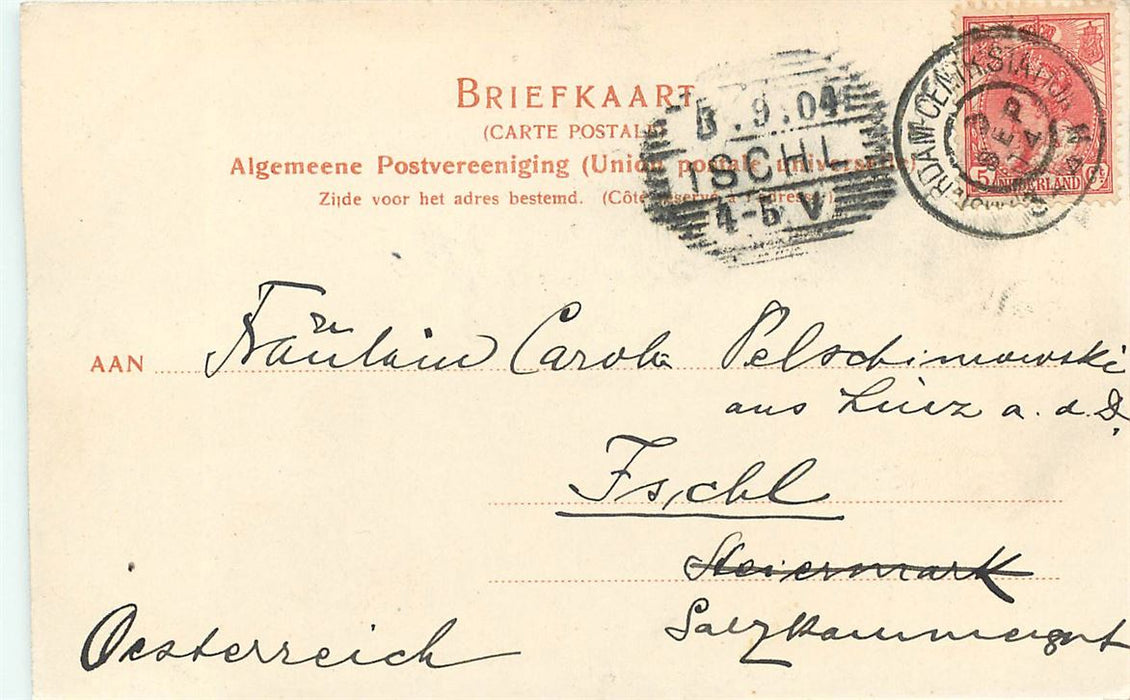 BRIEFKAART
(CARTE POSTALE)
Algemeene Postvereeniging (Union postale universelle)
Zijde voor het adres bestemd. (Côté réservé à l'adresse.)
5.9.04
ISCHL
4-5 V
AMSTERDAM-CENTR.STATION
3 SEP 04
5 Ct NEDERLAND
AAN Fräulein Carola
aus Linz a. d. D.
Ischl
Steiermark
Salzkammergut
Oesterreich